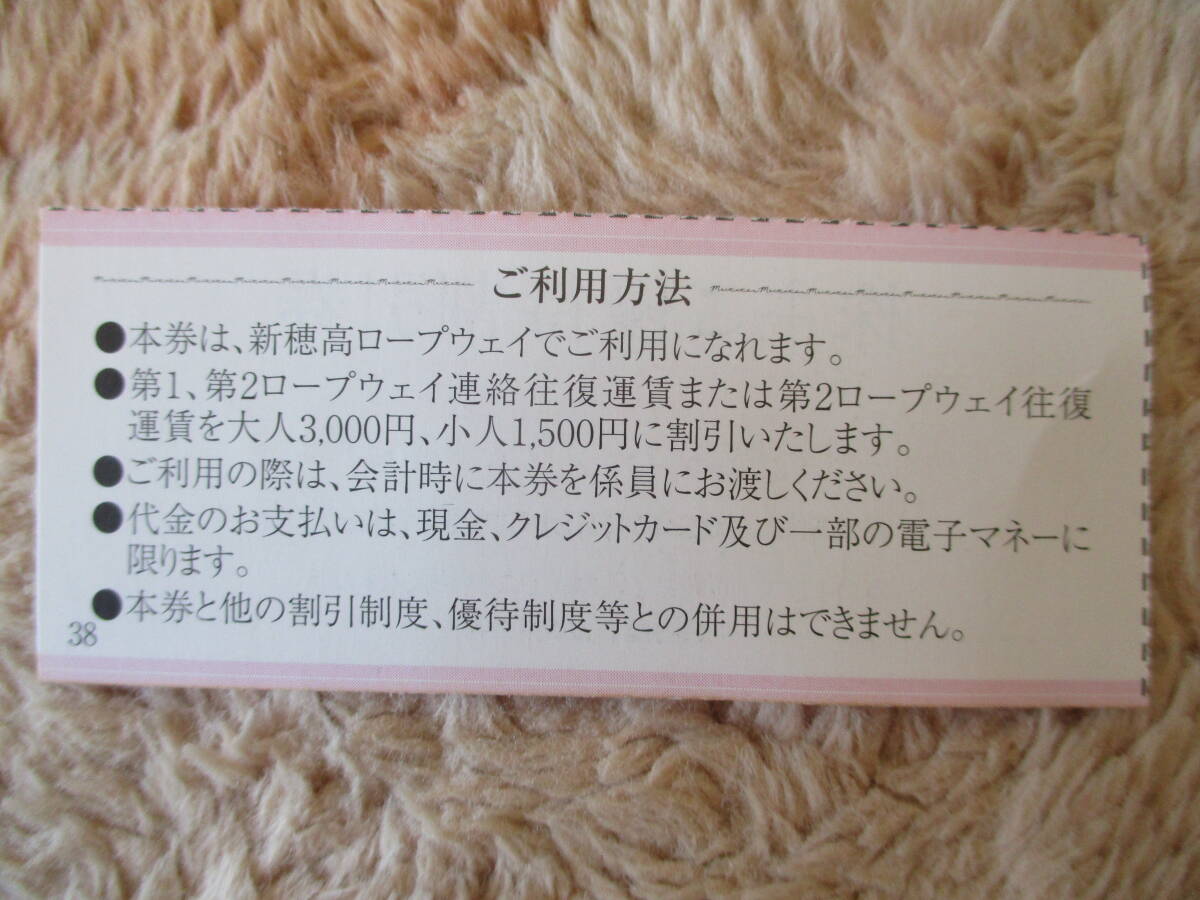 ご利用方法
●本券は、新穂高ロープウェイでご利用になれます。
●第1、第2ロープウェイ連絡往復運賃または第2ロープウェイ往復
運賃を大人3,000円、小人1,500円に割引いたします。
●ご利用の際は、会計時に本券を係員にお渡しください。
●代金のお支払いは、現金、クレジットカード及び一部の電子マネーに
限ります。
●本券と他の割引制度、優待制度等との併用はできません。
38